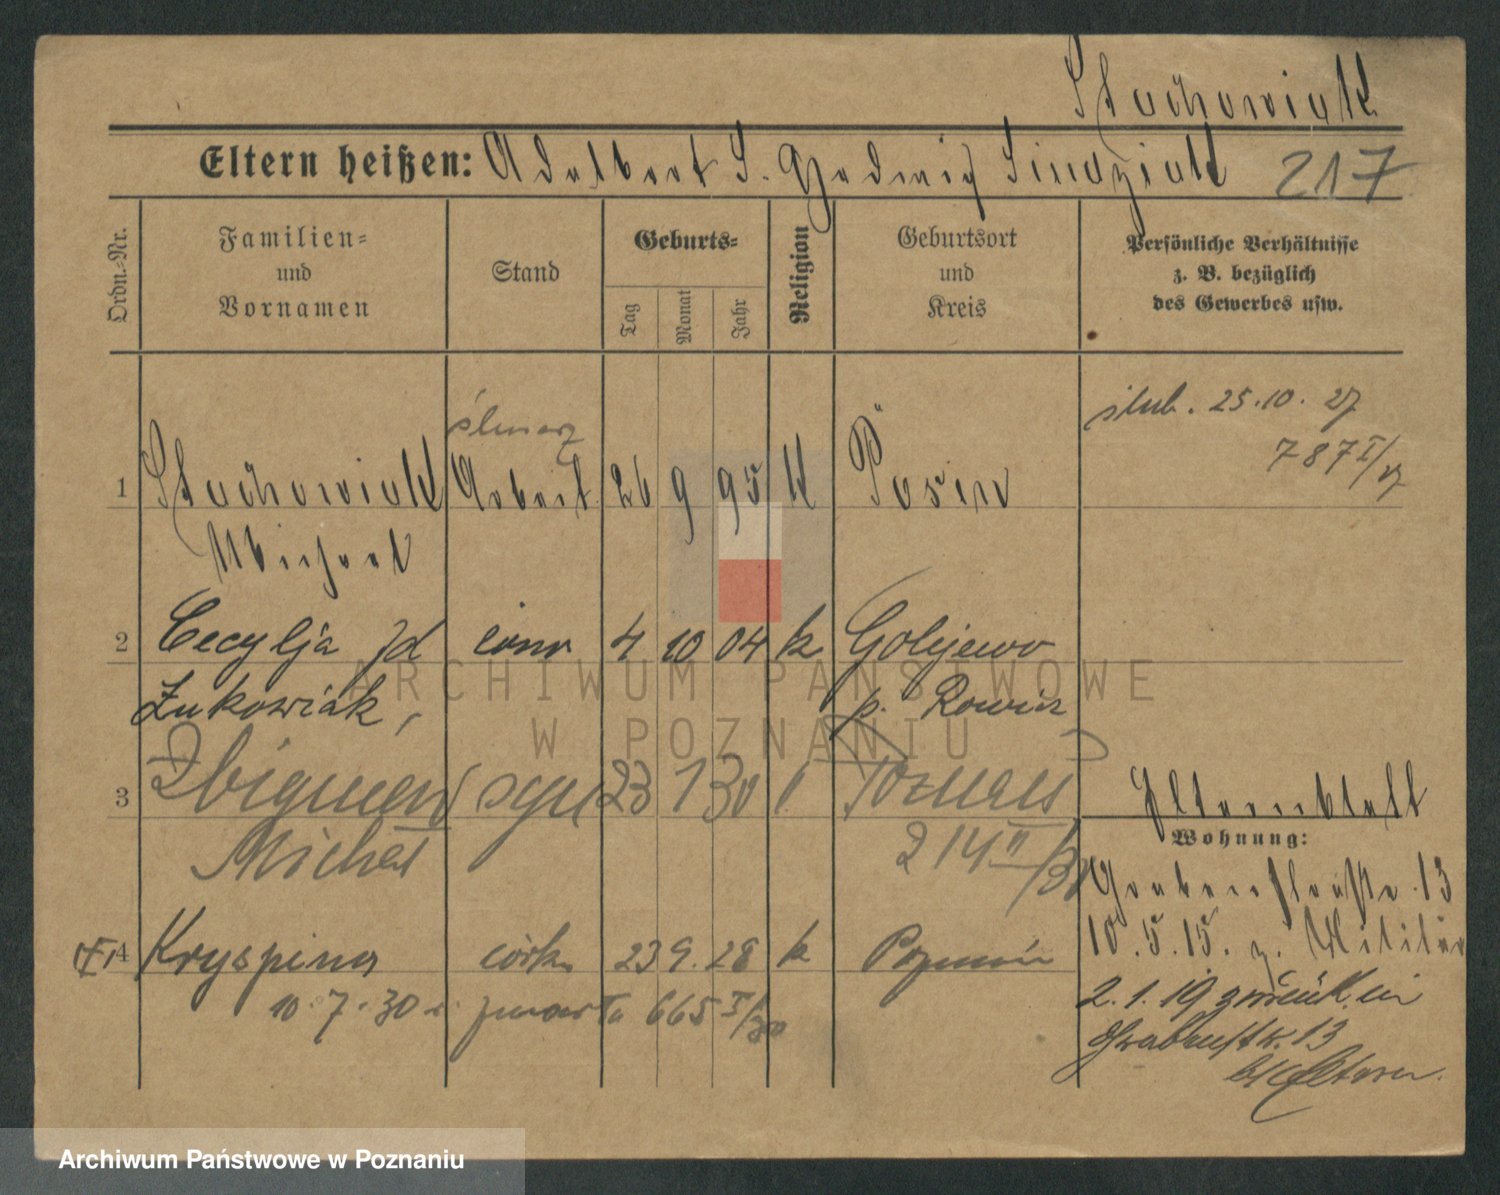 Stachowiak
Eltern heißen: Adalbert S. Hedwig Sindziak 217
Ordn.=Nr.
Familien=
und
Vornamen
Stand
Geburts=
Tag
Monat
Jahr
Religion
Geburtsort
und
Kreis
Persönliche Verhältnisse
z. B. bezüglich
des Gewerbes usw.
ślusarz
ślub. 25.10.27
787 I/27
1 Stachowiak Arbeit. 26 9 95 k Posen
Michael
2 Cecylja żona 4 10 04 k Golejewo
Żukowiak, p. Rawicz
3 Zbigniew syn 23 1 30 Poznań
Michał 214 II/30
Elternblatt
Wohnung:
Grabenstraße 13
10.5.15. z. Militär
2.1.19 zurück in
Grabenstr. 13
b/Eltern.
4 Kryspina córka 23 9. 28 k Poznań
10.7.30 zmarła 665 I/30
ARCHIWUM PAŃSTWOWE
W POZNANIU
Archiwum Państwowe w Poznaniu